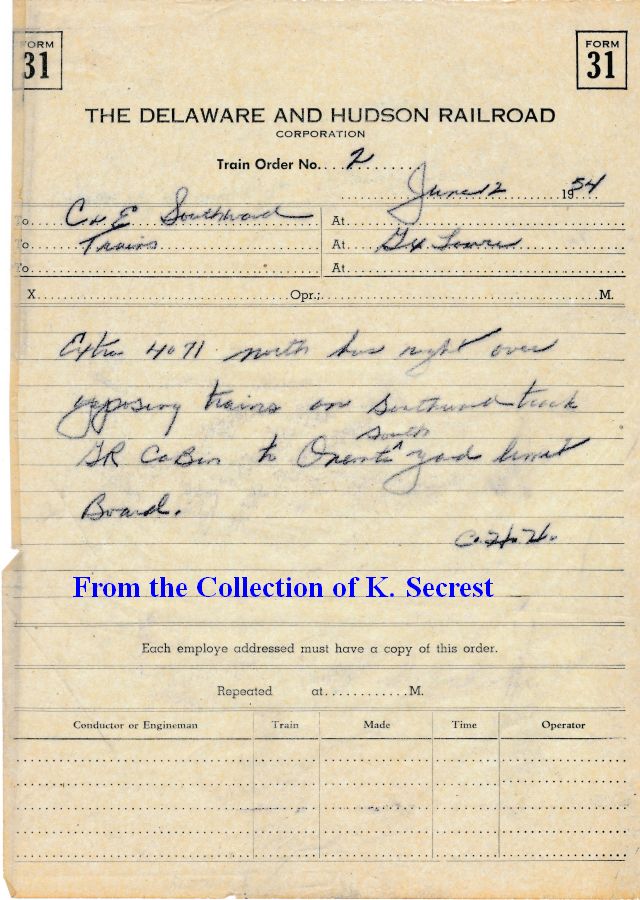 FORM
31
FORM
31
THE DELAWARE AND HUDSON RAILROAD
CORPORATION
Train Order No. 2
June 12 1954
To C & E Southward At
To Trains At Tower
To At
X Opr.; M.
Extra 4071 north has right over
opposing trains on Southward track
GR Cabin to south yard limit
Board.
From the Collection of K. Secrest
Each employe addressed must have a copy of this order.
Repeated at............M.
Conductor or Engineman Train Made Time Operator